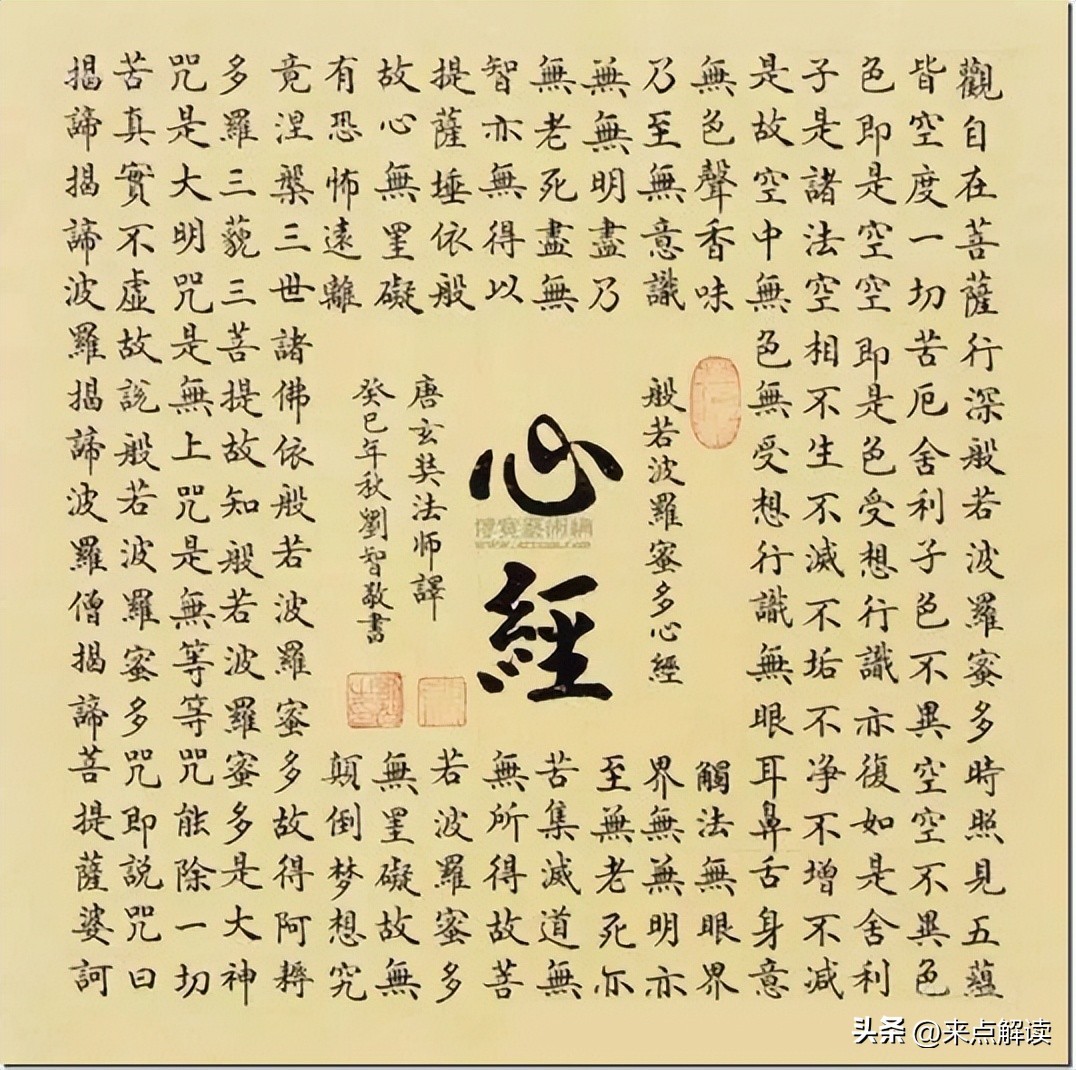 觀自在菩薩行深般若波羅蜜多時照見五蘊
皆空度一切苦厄舍利子色不異空空不異色
色即是空空即是色受想行識亦復如是舍利
子是諸法空相不生不滅不垢不净不增不減
是故空中無色無受想行識無眼耳鼻舌身意
無色聲香味
觸法無眼界
乃至無意識
界無無明亦
無無明盡乃
至無老死亦
無老死盡無
苦集滅道無
智亦無得以
無所得故菩
提薩埵依般
若波羅蜜多
故心無罣礙
無罣礙故無
有恐怖遠離
顛倒梦想究
竟涅槃三世諸佛依般若波羅蜜多故得阿耨
多羅三藐三菩提故知般若波羅蜜多是大神
咒是大明咒是無上咒是無等等咒能除一切
苦真實不虛故說般若波羅蜜多咒即說咒曰
揭諦揭諦波羅揭諦波羅僧揭諦菩提薩婆訶
般若波羅蜜多心經
心經
唐玄奘法师譯
癸巳年秋劉智敬書
博寶藝術網
头条 @来点解读